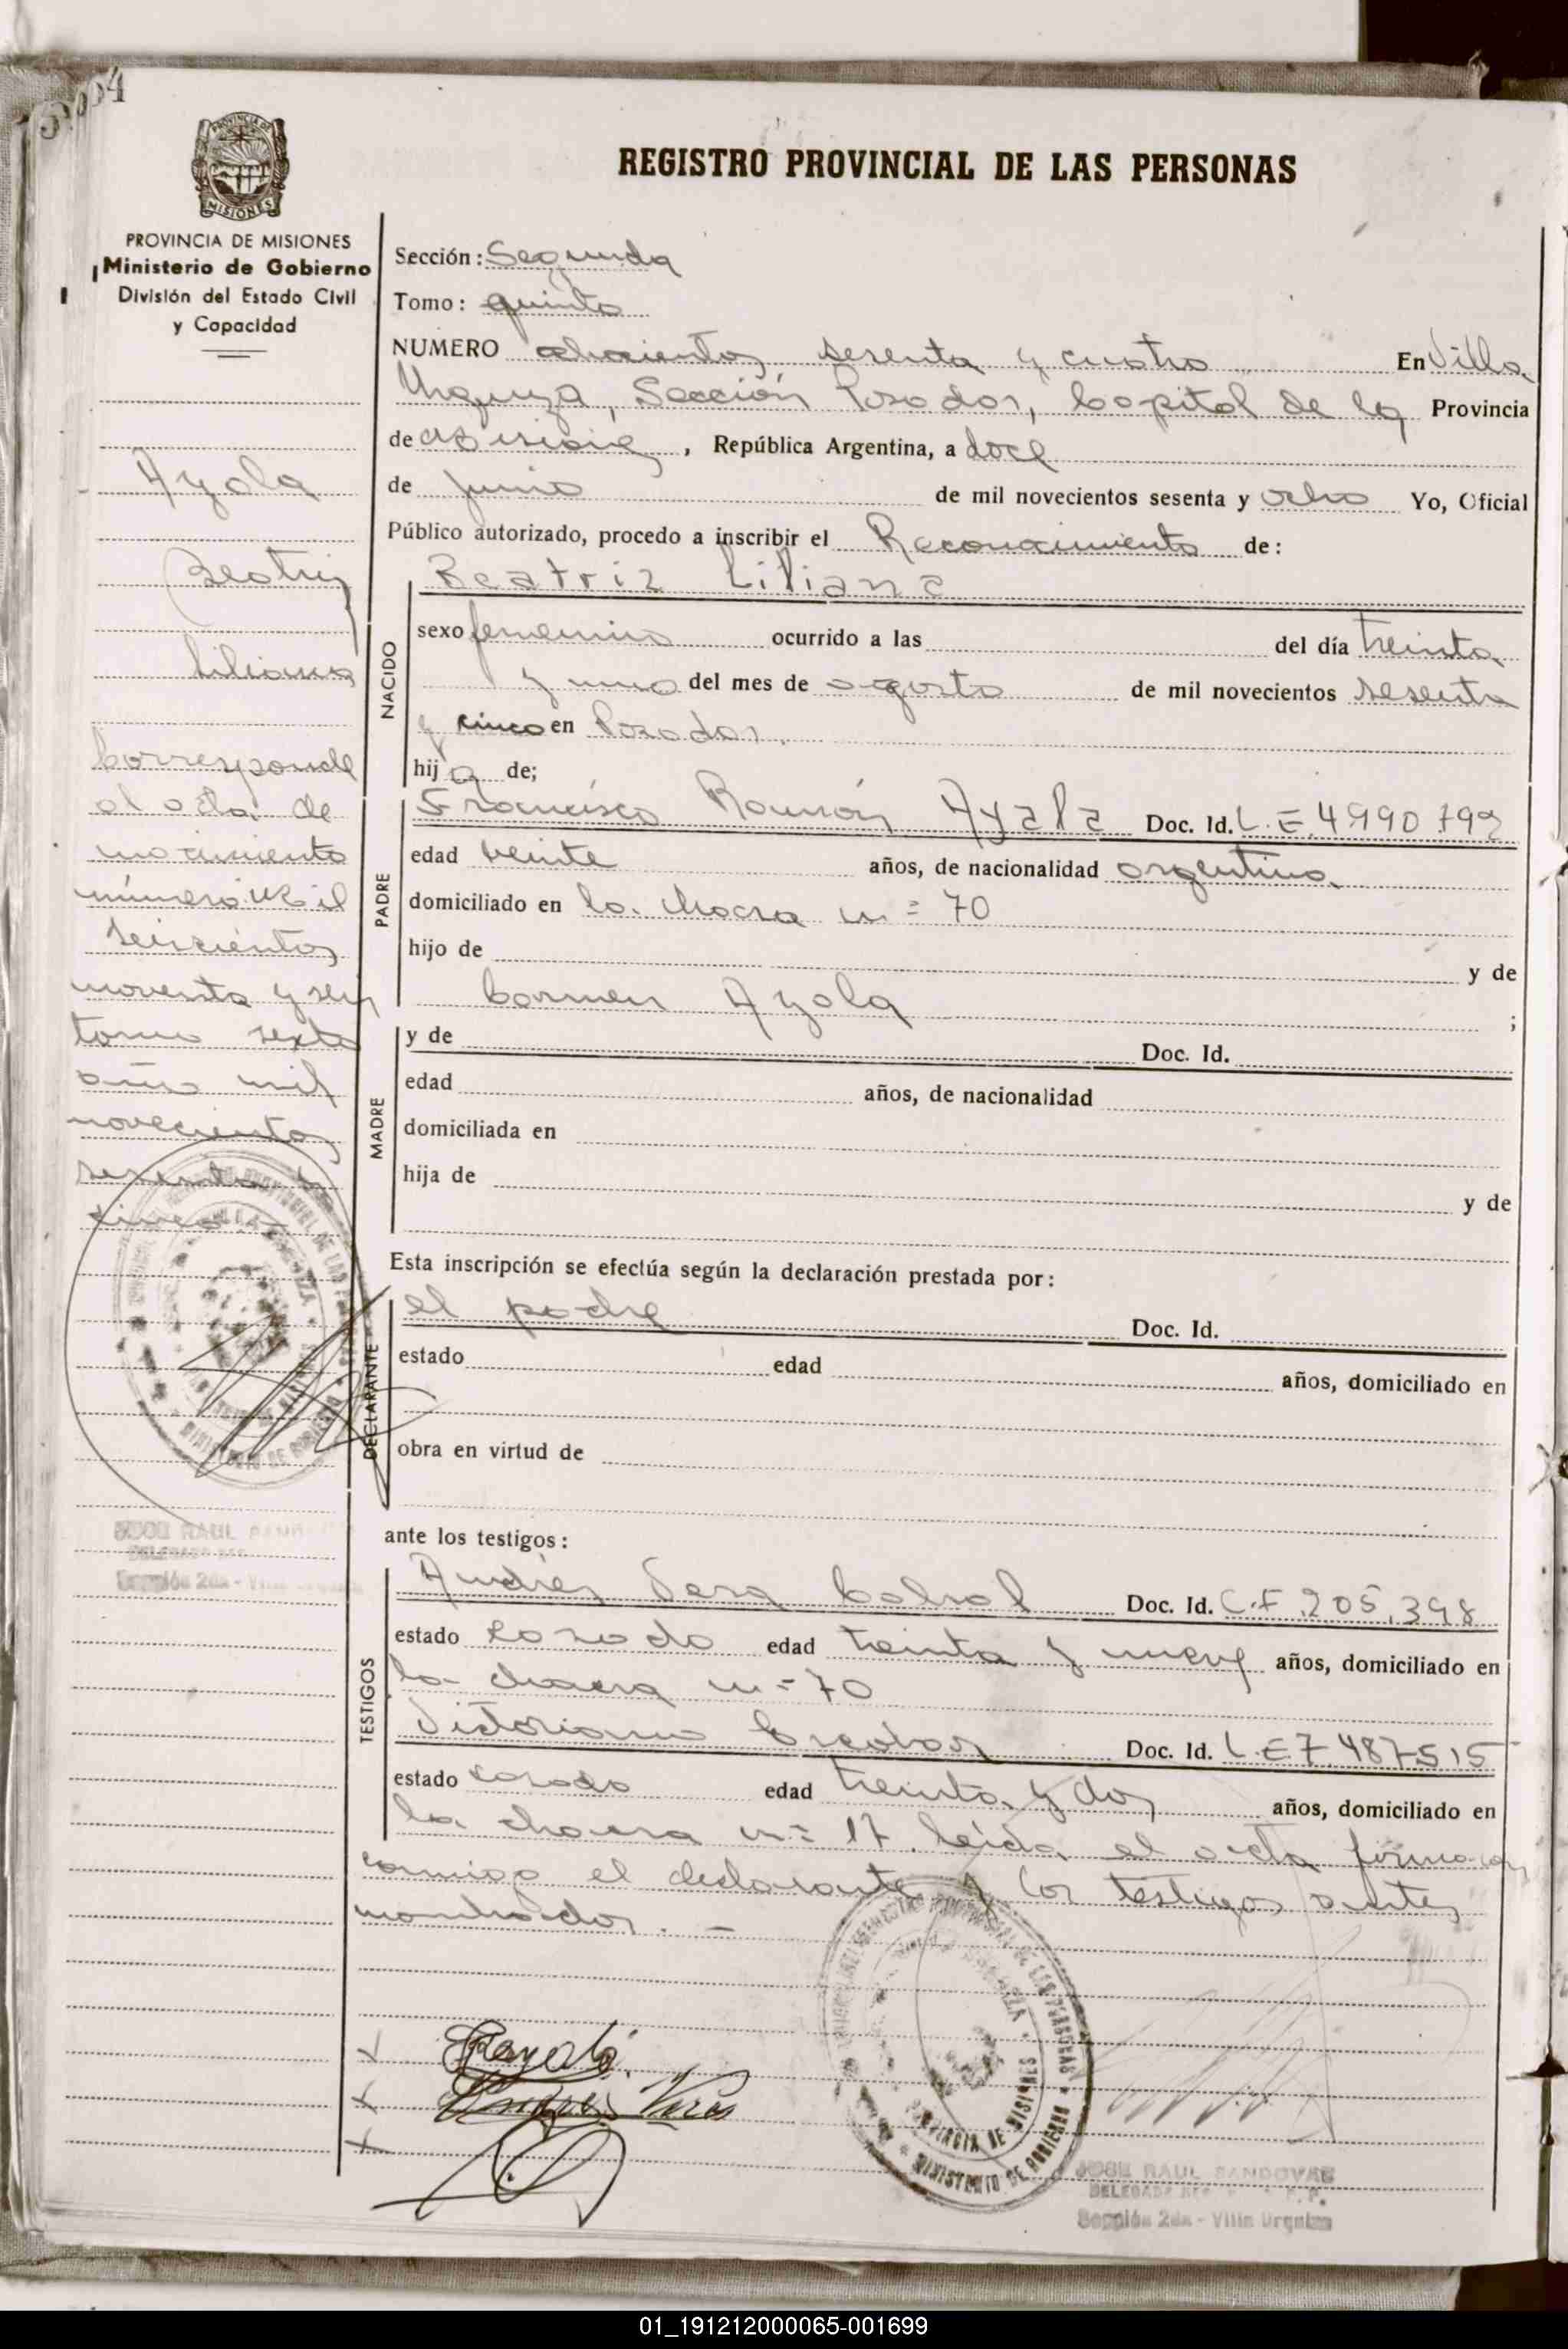 REGISTRO PROVINCIAL DE LAS PERSONAS
PROVINCIA DE MISIONES
Ministerio de Gobierno
División del Estado Civil
y Capacidad
Ayala
Beatriz
Liliana
Corresponde
al acta de
nacimiento
número mil
seiscientos
noventa y seis
tomo sexto
año mil
novecientos
sesenta y
cinco
Sección: Segunda
Tomo: quinto
NUMERO ochocientos sesenta y cuatro En Villa
Urquiza, Sección Posadas, Capital de la Provincia
de Misiones, República Argentina, a doce
de junio de mil novecientos sesenta y ocho Yo, Oficial
Público autorizado, procedo a inscribir el Reconocimiento de:
NACIDO
Beatriz Liliana
sexo femenino ocurrido a las del día treinta
y uno del mes de agosto de mil novecientos sesenta
y cinco en Posadas.
hija de;
PADRE
Francisco Ramón Ayala Doc. Id. L.E. 4990792
edad veinte años, de nacionalidad argentina
domiciliado en la chacra n= 70
hijo de y de
Carmen Ayala ;
MADRE
y de Doc. Id.
edad años, de nacionalidad
domiciliada en
hija de y de
Esta inscripción se efectúa según la declaración prestada por:
DECLARANTE
el padre Doc. Id.
estado edad años, domiciliado en
obra en virtud de
ante los testigos:
TESTIGOS
Andrés Vera Cabral Doc. Id. C.I. 205.398
estado casado edad treinta y nueve años, domiciliado en
la chacra n= 70
Victoriano Escobar Doc. Id. L.E 7.487515
estado casado edad treinta y dos años, domiciliado en
la chacra n= 17. Leída el acta firman con
migo el declarante y los testigos antes
mencionados. -
MINISTERIO DE GOBIERNO
PROVINCIA DE MISIONES
JOSE RAUL SANDOVAL
Sección 2da - Villa Urquiza
01_191212000065-001699